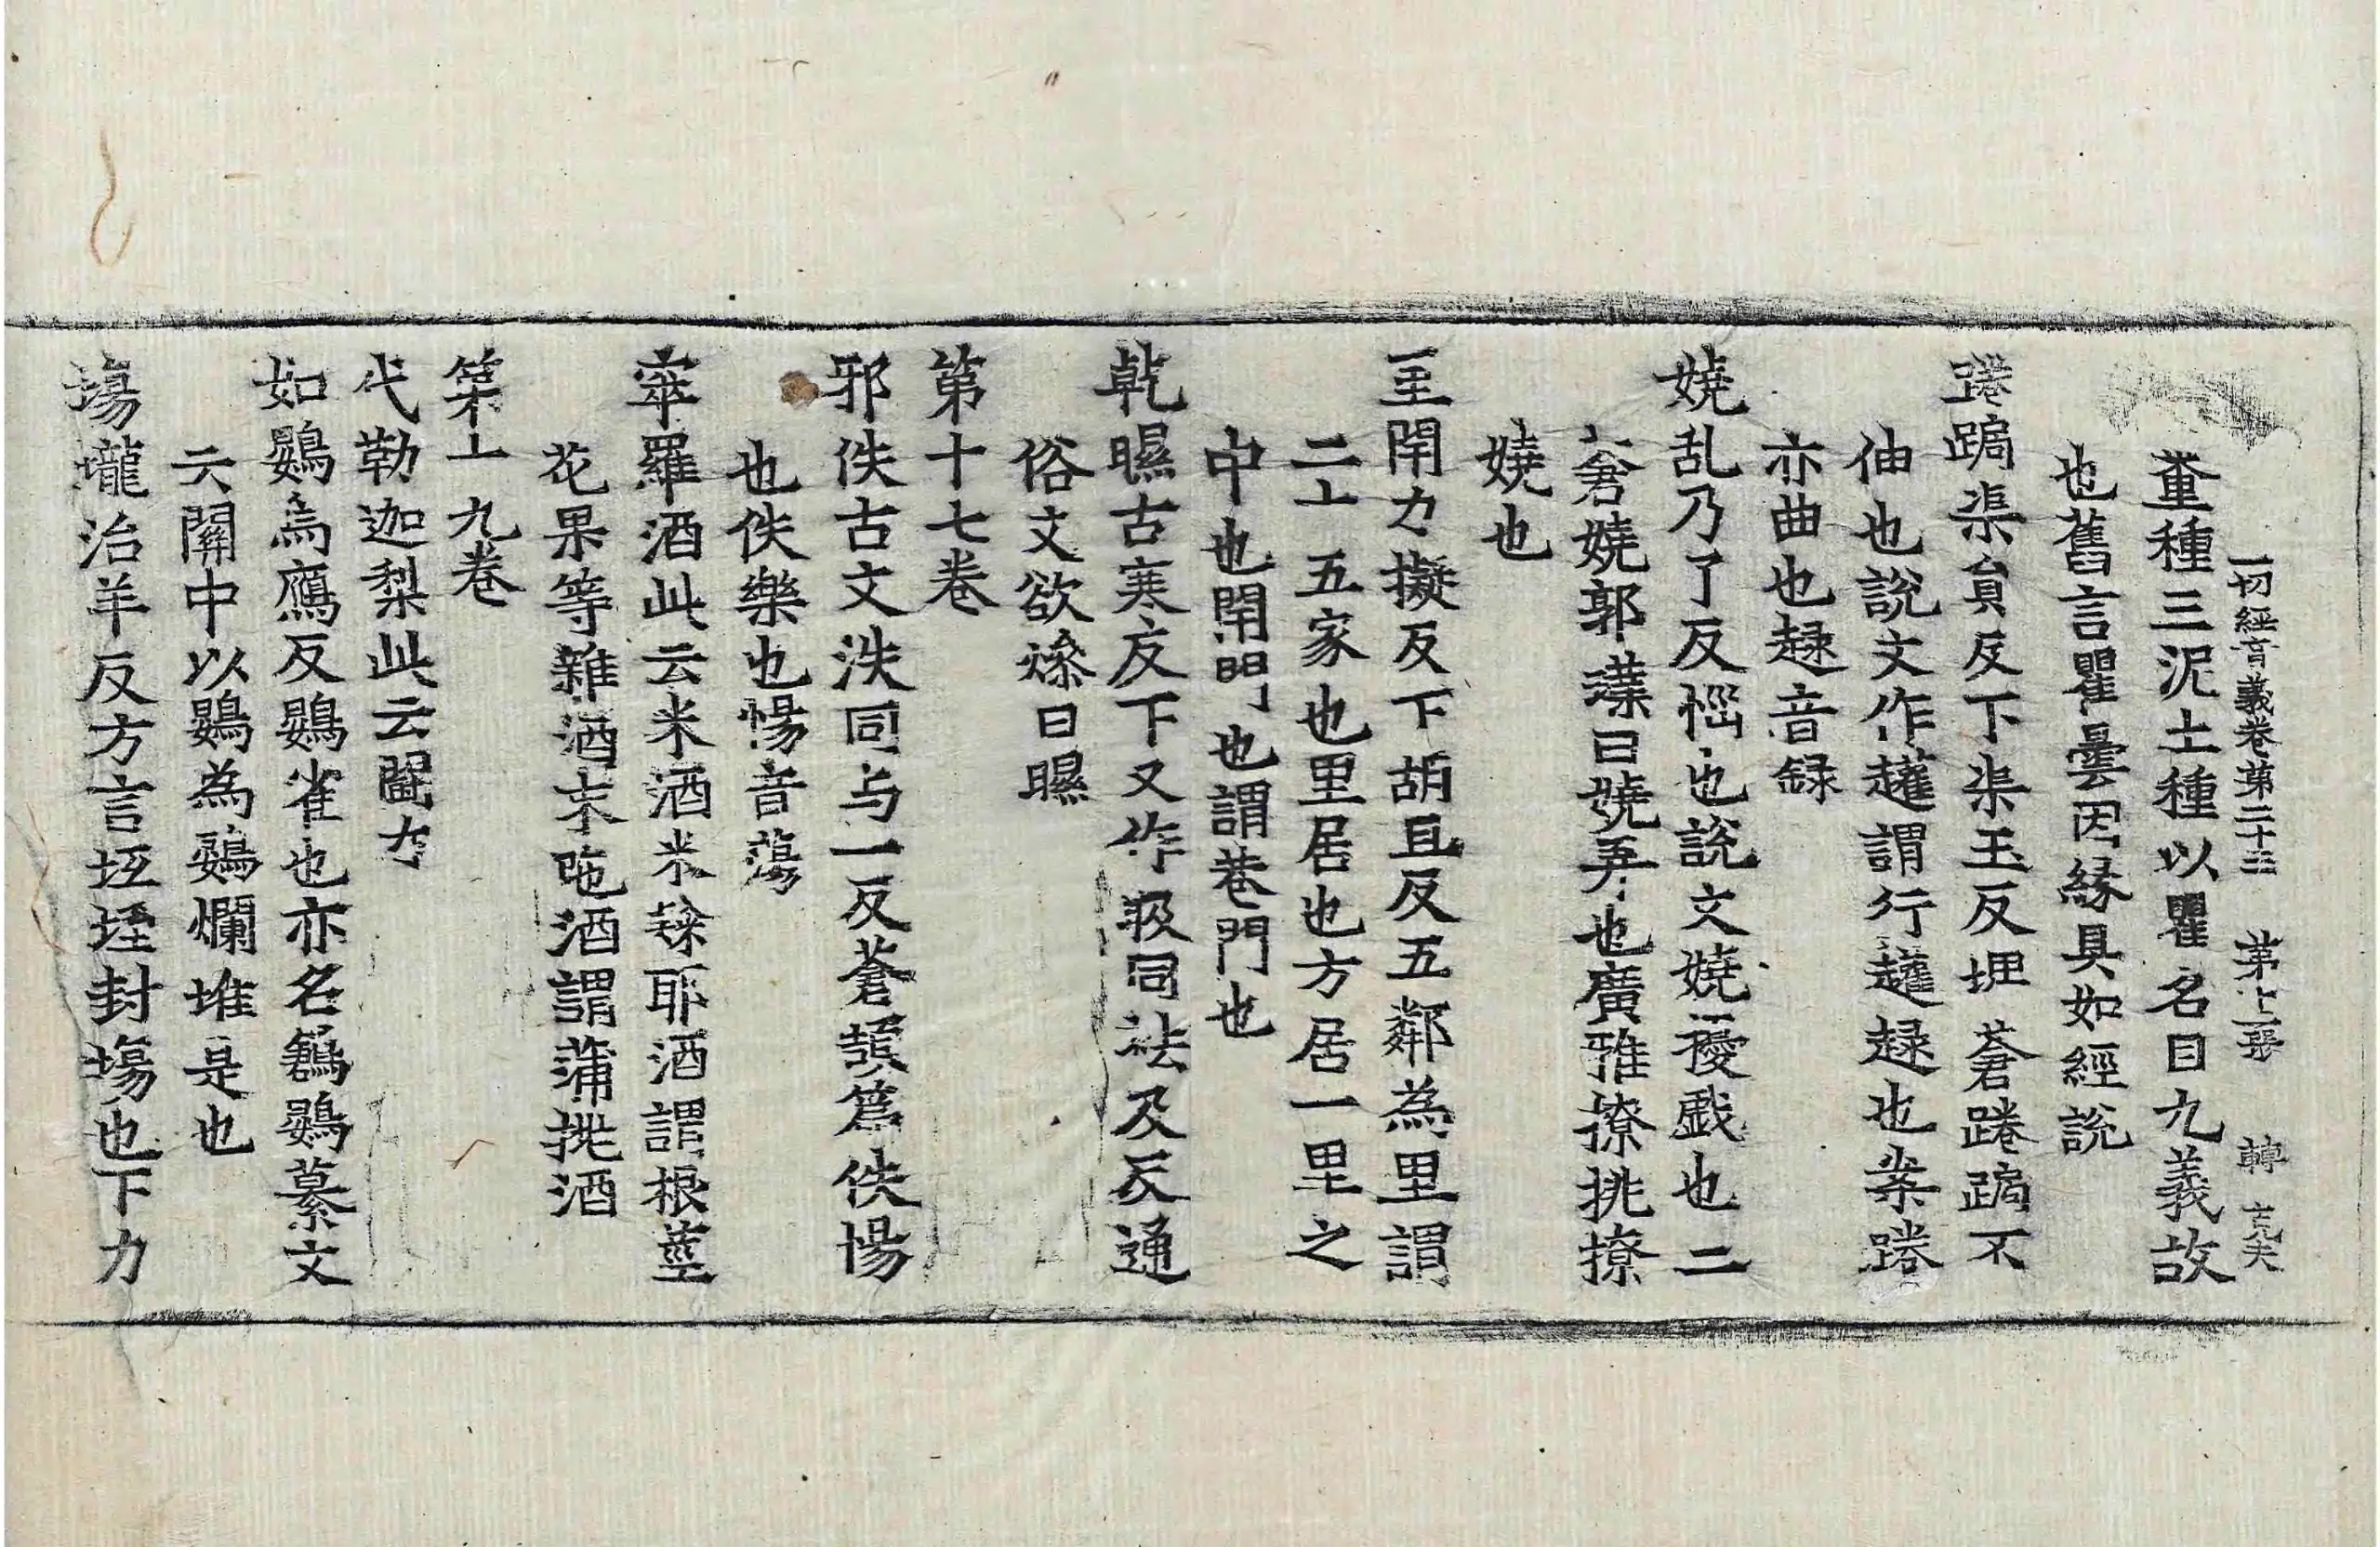 一切經音義卷第二十三 第十一張 轉 克夫
董種三泥土種以瞿名目九義故
也舊言瞿曇因緣具如經說
踡跼渠負反下渠玉反埋蒼踡跼不
伸也說文作趯謂行趯趢也案踡
亦曲也趢音録
嬈乱乃了反惱也說文嬈擾戯也二
蒼嬈郭璞曰嬈弄也廣雅撩挑撩
嬈也
里閈力擬反下胡旦反五鄰為里謂
二十五家也里居也方居一里之
中也閈門也謂巷門也
乾㬠古寒反下又作㬤同祛及反通
俗文欲燥曰㬠
第十七卷
邪佚古文泆同与一反蒼頡篇佚愓
也佚樂也愓音蕩
窣羅酒此云米酒米𥻦耶酒謂根莖
花果等雜酒末陁酒謂蒲挑酒
第十九卷
代勒迦梨此云闔
如鷃為鴈反鷃雀也亦名鶕鷃纂文
云關中以鷃為鷃爛堆是也
塲壠治羊反方言坻垤封塲也下力